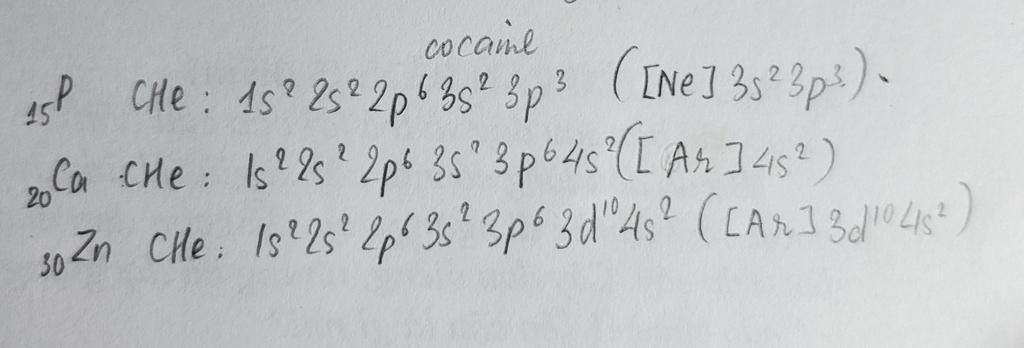 cocaine
₁₅P CHe: 1s² 2s² 2p⁶ 3s² 3p³ ([Ne] 3s² 3p³).
₂₀Ca CHe: 1s² 2s² 2p⁶ 3s² 3p⁶ 4s² ([Ar] 4s²)
₃₀Zn CHe: 1s² 2s² 2p⁶ 3s² 3p⁶ 3d¹⁰ 4s² ([Ar] 3d¹⁰ 4s²)